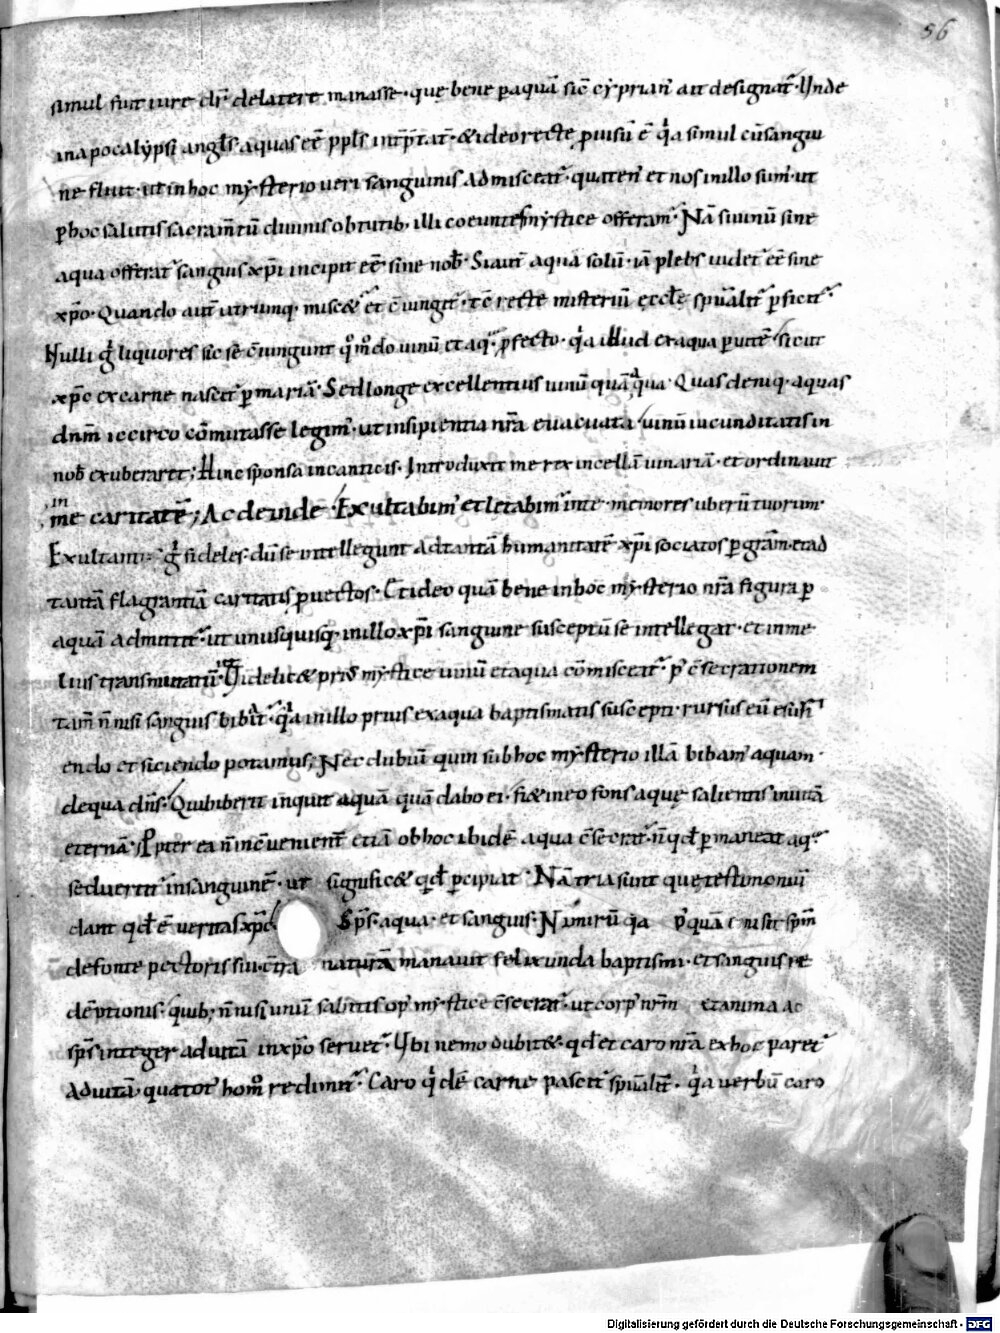 56
simul sunt iure dr̄ de latere manasse · quę bene p aquā sic̄ cẏprian' ait designat̄ · Unde
in apocalẏpsi angl̄s aquas eē ppl̄s int̄p̄tat̄ · & ideo recte p̄uisū ē q̇a simul cū sangui
ne fluit · ut in hoc mẏsterio ueri sanguinis admisceat̄ · quaten' et nos in illo sum' · ut
p hoc salutis sacram̄tū diuinis obtutib; illi coeuntes mẏstice offeram̄ · Nā si uinū sine
aqua offerat̄ sanguis xp̄i incipit eē sine nob̄ · Si aut̄ aqua solū · iā plebs uidet̄ eē sine
xp̄o · Quando aut̄ utrumq; misc&̄ et c̄iungit̄ · tc̄ recte misteriū ęccl̄e spūalit̄ pficit̄ ·
Nulli g̊ liquores sic sē c̄iungunt q̊m̊do uinū et aq̄ pfecto · q̇a illud ex aqua p uitē sicut
xp̄c ex carne nascit̄ p mariā · Sed longe excellentius uinū quā aqua · Quas deniq; aquas
dnm̄ iccirco cōmutasse legim̄ · ut insipientia nr̄a euacuata uinū iucunditatis in
nob̄ exuberaret ; Hinc sponsa in canticis · Introduxit me rex in cellā uinariā · et ordinauit
in
me caritatē ; Ac deinde · Exultabim' et letabim̄ in te · memores uberū tuorum ·
Exultant g̊ fideles · dū se intellegunt ad tantā humanitatē xp̄i sociatos p gr̄am · et ad
tantā flagrantiā caritatis p̄uectos · Et ideo quā bene in hoc mẏsterio nr̄a figura p
aquā admittit̄ · ut unusquisq; in illo xp̄i sanguine susceptū se intellegat · et in me
lius transmutatū · Uidelic& prius mẏstice uinū et aqua cōmisceat̄ · p' c̄secrationem
tam̄ n̄ nisi sanguis bibit̄ · q̇a in illo prius ex aqua baptismatis suscepti · rursus eū esuri
endo et siciendo potamus ; Nec dubiū quin sub hoc mẏsterio illā bibam' aquam ·
de qua dn̄s · Qui biberit inquit aquā quā dabo ei · fi& in eo fons aquę salientis in uitā
eternā · Ppter ea n̄ inc̄uenient̄ etiā ob hoc ibidē aqua c̄secrat̄ · n̄ qd̄ pmaneat aq̄
sed uertit̄ in sanguinē · ut signific& qd̄ pcipiat · Nā tria sunt quę testimoniū
dant qd̄ ē ueritas xp̄c Sp̄s · aqua · et sanguis · Nimirū q̇a p' quā emisit sp̄m
de fonte pectoris sui · c̄tra naturā manauit felix unda baptismi · et sanguis re
dēptionis · quib; n̄ nisi uinū sabitis op' mẏstice c̄secrat̄ · ut corp' nr̄m et anima ac
sp̄s integer ad uitā in xp̄o seruet̄ · Ubi nemo dubit& · qd̄ et caro nr̄a ex hoc paret̄
Ad uitā · qua tot' hom̊ redimit̄ · Caro q̇dē carne pascit̄ spūalit̄ · q̇a uerbū caro
Digitalisierung gefördert durch die Deutsche Forschungsgemeinschaft - DFG